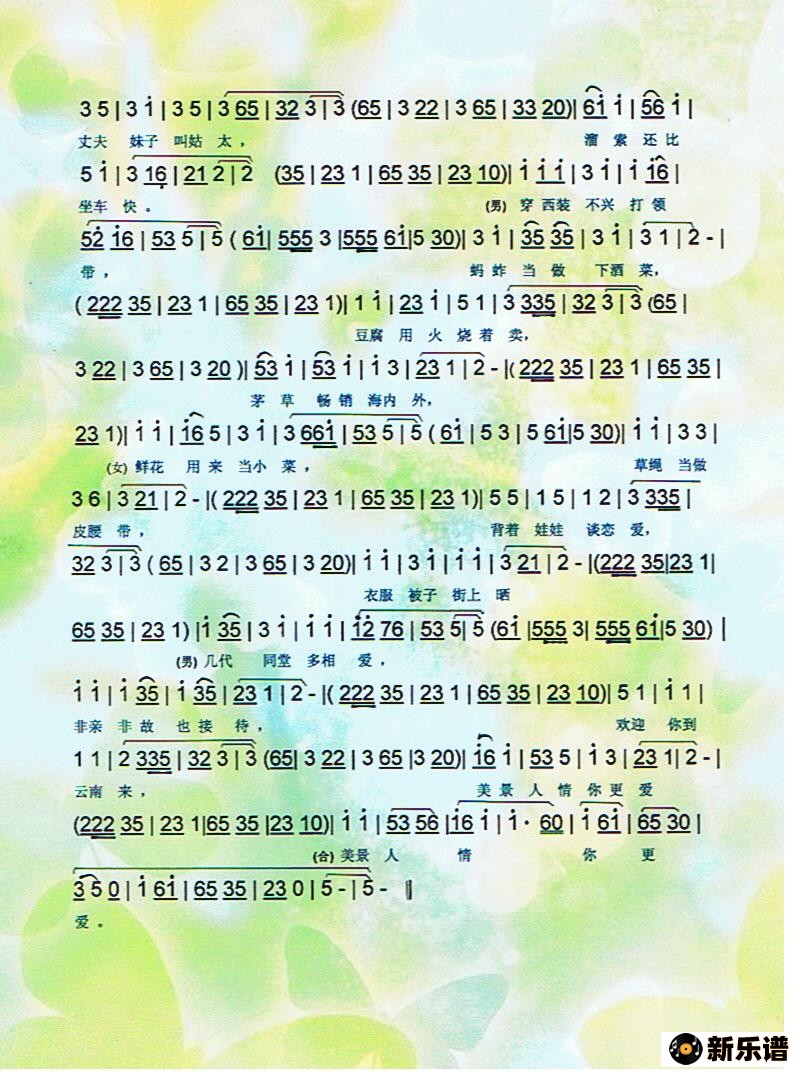 3 5 | 3 i̇ | 3 5 | 3 65 | 32 3 | 3 (65 | 3 22 | 3 65 | 33 20)| 6i̇ i̇ | 56 i̇ |
丈夫 妹子 叫姑 太， 溜 索 还 比
5 i̇ | 3 16̣ | 21 2 | 2 (35 | 23 1 | 65 35 | 23 10)| i̇ i̇i̇i̇ | 3 i̇ | i̇ i̇6 |
坐车 快。 (男) 穿 西装 不兴 打 领
52̇ i̇6 | 53 5 | 5 ( 6i̇| 555 3 |555 6i̇|5 30)| 3 i̇ | 35 35 | 3 i̇ | 3 1 | 2 - |
带， 蚂 蚱 当 做 下酒 菜，
( 222 35 | 23 1 | 65 35 | 23 1)| 1 i̇ | 23 i̇ | 5 1 | 3 335 | 32 3 | 3 (65 |
豆腐 用 火 烧着 卖，
3 22 | 3 65 | 3 20 )| 53 i̇ | 53 i̇ | i̇ 3 | 23 1 | 2 - |( 222 35 | 23 1 | 65 35 |
茅 草 畅 销 海内 外，
23 1)| i̇ i̇ | i̇6 5 | 3 i̇ | 3 66i̇ | 53 5 | 5 ( 6i̇ | 5 3 | 5 6i̇|5 30)| i̇ i̇ | 3 3 |
(女) 鲜花 用 来 当小 菜， 草绳 当做
3 6 | 3 21 | 2 - |( 222 35 | 23 1 | 65 35 | 23 1)| 5 5 | 1 5 | 1 2 | 3 335 |
皮腰 带， 背着 娃娃 谈恋 爱，
32 3 | 3 ( 65 | 3 2 | 3 65 | 3 20)| i̇ i̇ | 3 i̇ | i̇ i̇ | 3 21 | 2 - |(222 35|23 1|
衣服 被子 街上 晒
65 35 | 23 1) |i̇ 35 | 3 i̇ | i̇ i̇ | i̇2̇ 76 | 53 5 | 5 (6i̇ |555 3| 555 6i̇|5 30) |
(男) 几代 同堂 多相 爱，
i̇ i̇ | i̇ 35 | i̇ 35 | 23 1 | 2 - |( 222 35 | 23 1 | 65 35 | 23 10)| 5 1 | i̇ 1 |
非亲 非故 也接 待， 欢迎 你到
1 1 | 2 335 | 32 3 | 3 (65| 3 22 | 3 65 |3 20)| i̇6 i̇ | 53 5 | i̇ 3 | 23 1| 2 - |
云南 来， 美 景 人 情 你 更 爱
(222 35 | 23 1|65 35 |23 10)| i̇ i̇ | 53 56 |i̇6 i̇ | i̇· 60 | i̇ 6i̇ | 65 30 |
(合) 美景 人 情 你 更
3 5 0 | i̇ 6i̇ | 65 35 | 23 0 | 5 - | 5 - ‖
爱。
新乐谱